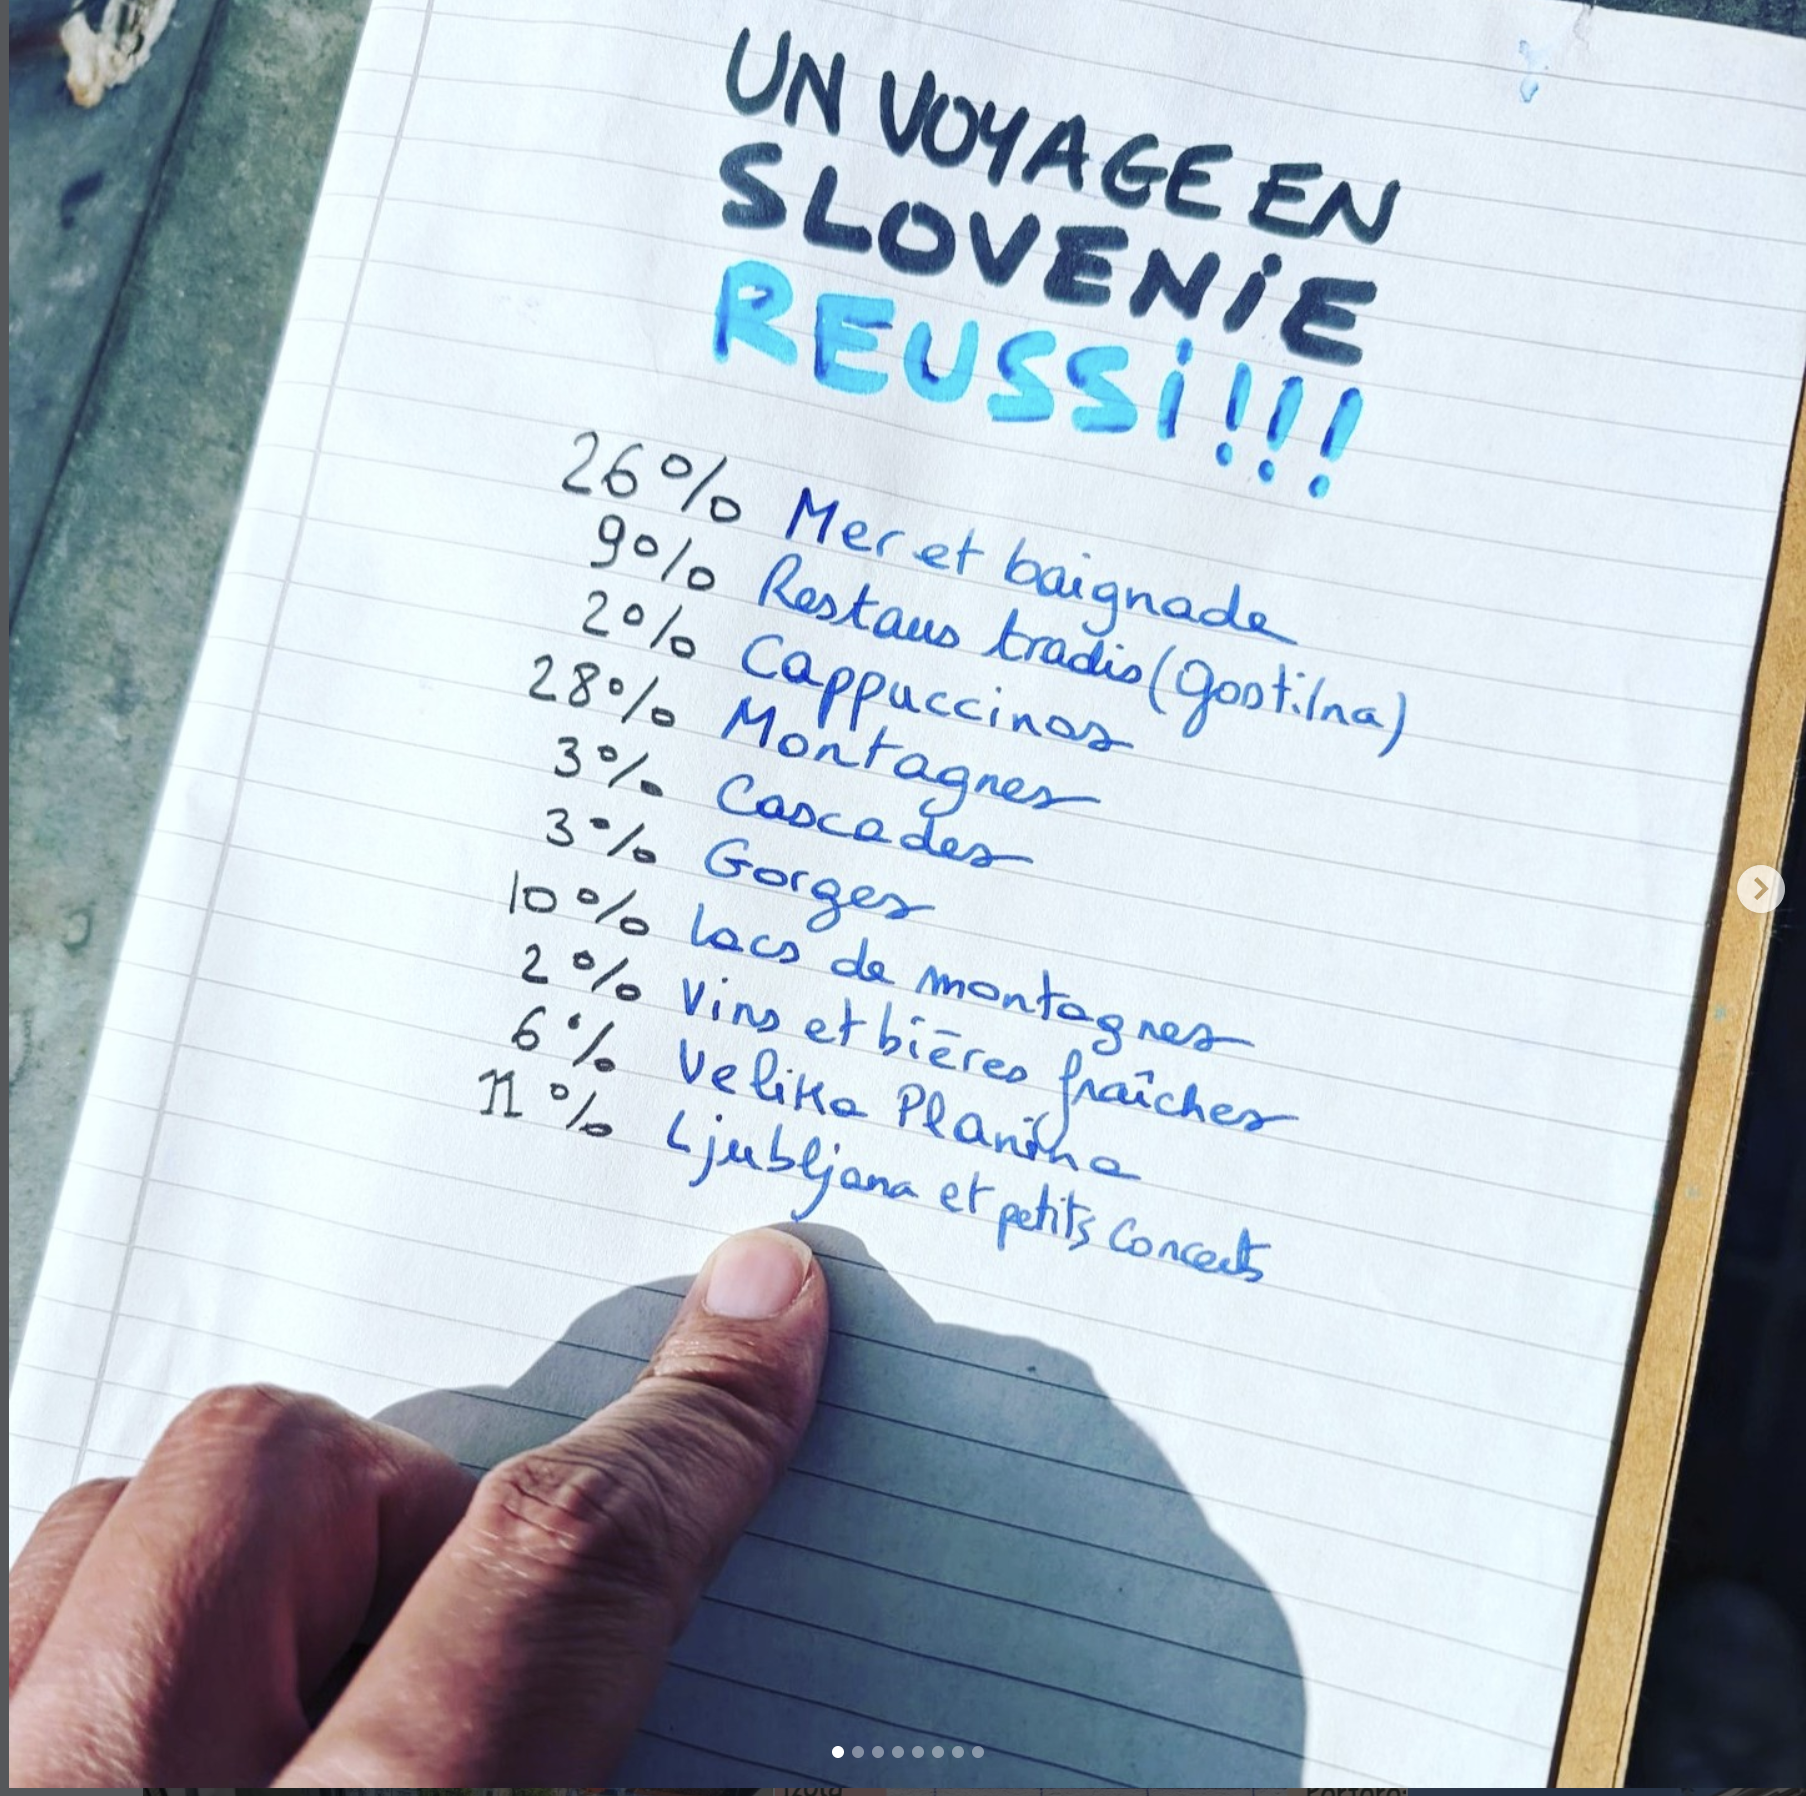 UN VOYAGE EN
SLOVENiE
REUSSi!!!
26% Mer et baignade
9% Restaus tradis (gostilna)
2% Cappuccinos
28% Montagnes
3% Cascades
3% Gorges
10% Lacs de montagnes
2% Vins et bières fraîches
6% Velika Planina
11% Ljubljana et petits concerts